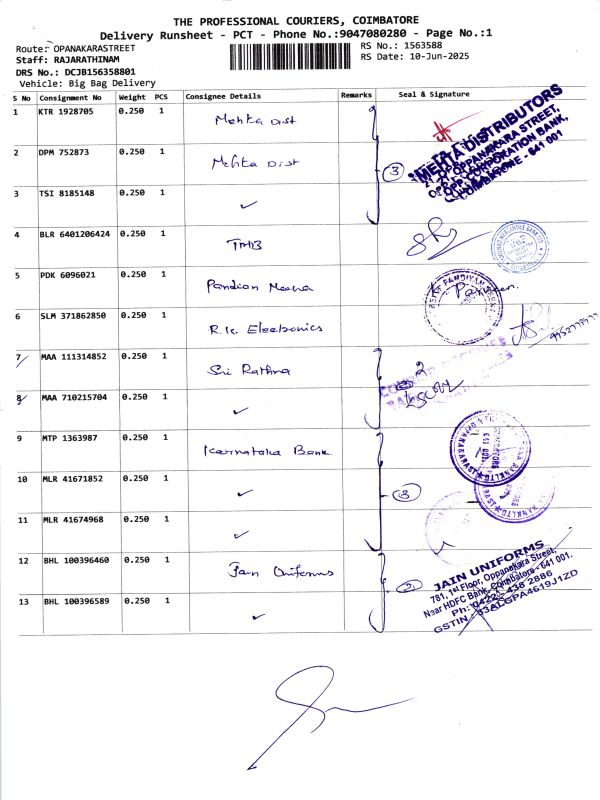 THE PROFESSIONAL COURIERS, COIMBATORE
Delivery Runsheet - PCT - Phone No.:9047080280 - Page No.:1
Route: OPANAKARASTREET
RS No.: 1563588
Staff: RAJARATHINAM
RS Date: 10-Jun-2025
DRS No.: DCJB156358801
Vehicle: Big Bag Delivery
S No Consignment No Weight PCS Consignee Details Remarks Seal & Signature
1 KTR 1928705 0.250 1 Mehta Dist
2 DPM 752873 0.250 1 Mehta Dist
3 TSI 8185148 0.250 1 ✓
3
MEHTA DISTRIBUTORS
OPPANAKARA STREET,
OPP. CORPORATION BANK,
COIMBATORE - 641 001
4 BLR 6401206424 0.250 1 TMB
5 PDK 6096021 0.250 1 Pandian
6 SLM 371862850 0.250 1 R.K. Electronics
7 MAA 111314852 0.250 1 Sri Rathna
2
8 MAA 710215704 0.250 1 ✓
9 MTP 1363987 0.250 1 Karnataka Bank
10 MLR 41671852 0.250 1 ✓
3
11 MLR 41674968 0.250 1 ✓
12 BHL 100396460 0.250 1 Jain Uniforms
2
13 BHL 100396589 0.250 1 ✓
JAIN UNIFORMS
781, 1st Floor, Oppanakara Street,
Near HDFC Bank, Coimbatore - 641 001.
Ph: 0422 - 438 2886
GSTIN : 33ALGPA4619J1ZD